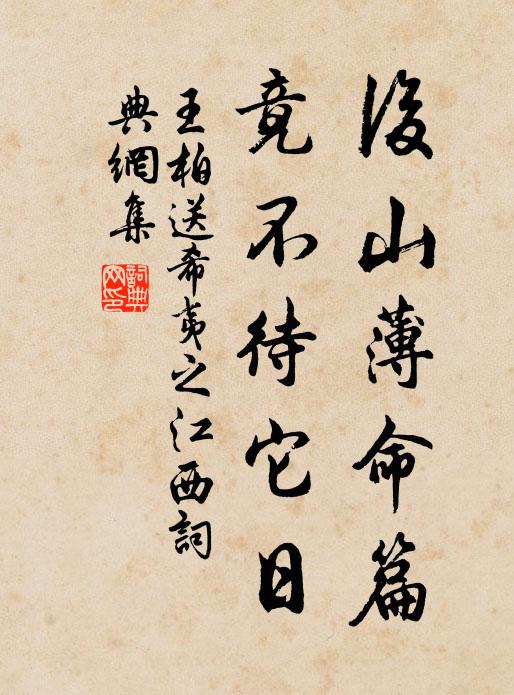 後山薄命篇
竟不待它日
王柏送希夷之江西詞
典網集
詞典網印